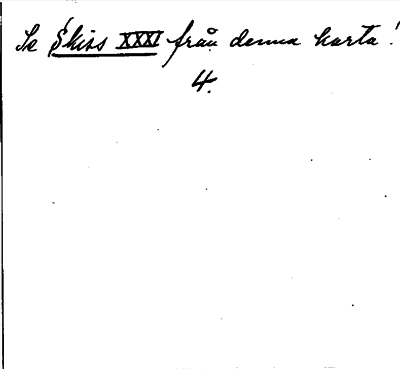 Se Skiss XXXI från denna karta!
4.